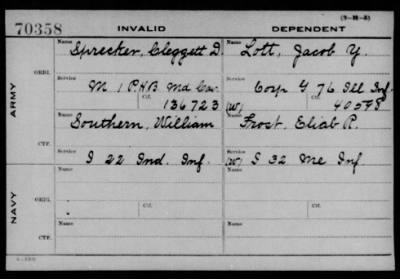 (3-M-5)
70358 INVALID DEPENDENT
Name Sprecker, Cleggett D. Name Lott, Jacob Y.
ARMY
ORD.
Service M 1 P.H.B. Md Cav. Service Corp G 76 Ill Inf.
Ctf. 136723 (W) Ctf. 40578
Name Southern, William Name Frost, Eliab P.
CTF.
Service I 22 Ind. Inf. Service (W) I 32 Me Inf
NAVY
Name Name
ORD.
Service Ctf. Service Ctf.
Name Name
CTF.
Service Service